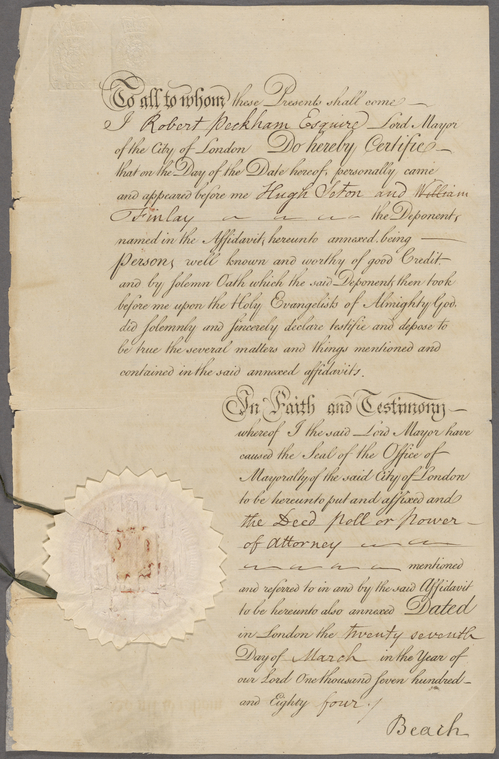 To all to whom these Presents shall come
I Robert Peckham Esquire Lord Mayor
of the City of London Do hereby Certifie
that on the Day of the Date hereof, personally came
and appeared before me Hugh Seton and William
Finlay the Deponents
named in the Affidavits hereunto annexed being
Persons well known and worthy of good Credit
and by solemn Oath which the said Deponents then took
before me upon the Holy Evangelists of Almighty God
did solemnly and sincerely declare testifie and depose to
be true the several matters and things mentioned and
contained in the said annexed affidavits.
In Faith and Testimony
whereof I the said Lord Mayor have
caused the Seal of the Office of
Mayoralty of the said City of London
to be hereunto put and affixed and
the Deed Poll or Power
of Attorney
mentioned
and referred to in and by the said Affidavit
to be hereunto also annexed Dated
in London the twenty seventh
Day of March in the Year of
our Lord One thousand seven hundred
and Eighty four
Beach